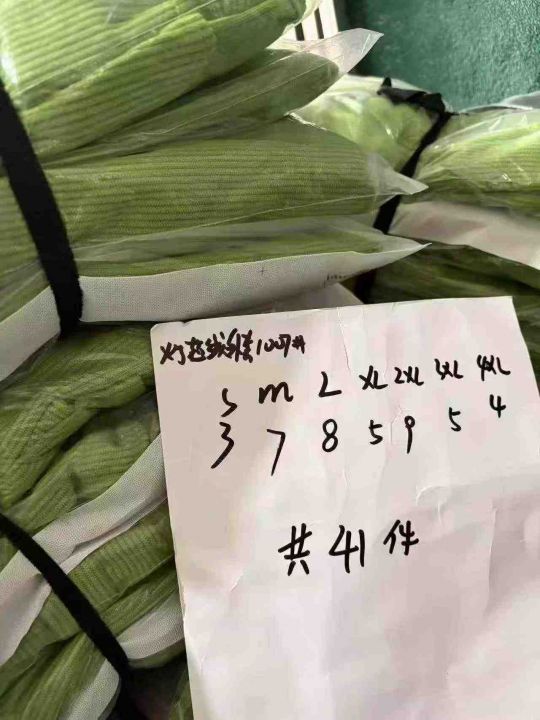 灯芯绒 1007#
S M L XL 2XL 3XL 4XL
3 7 8 5 9 5 4
共 41 件